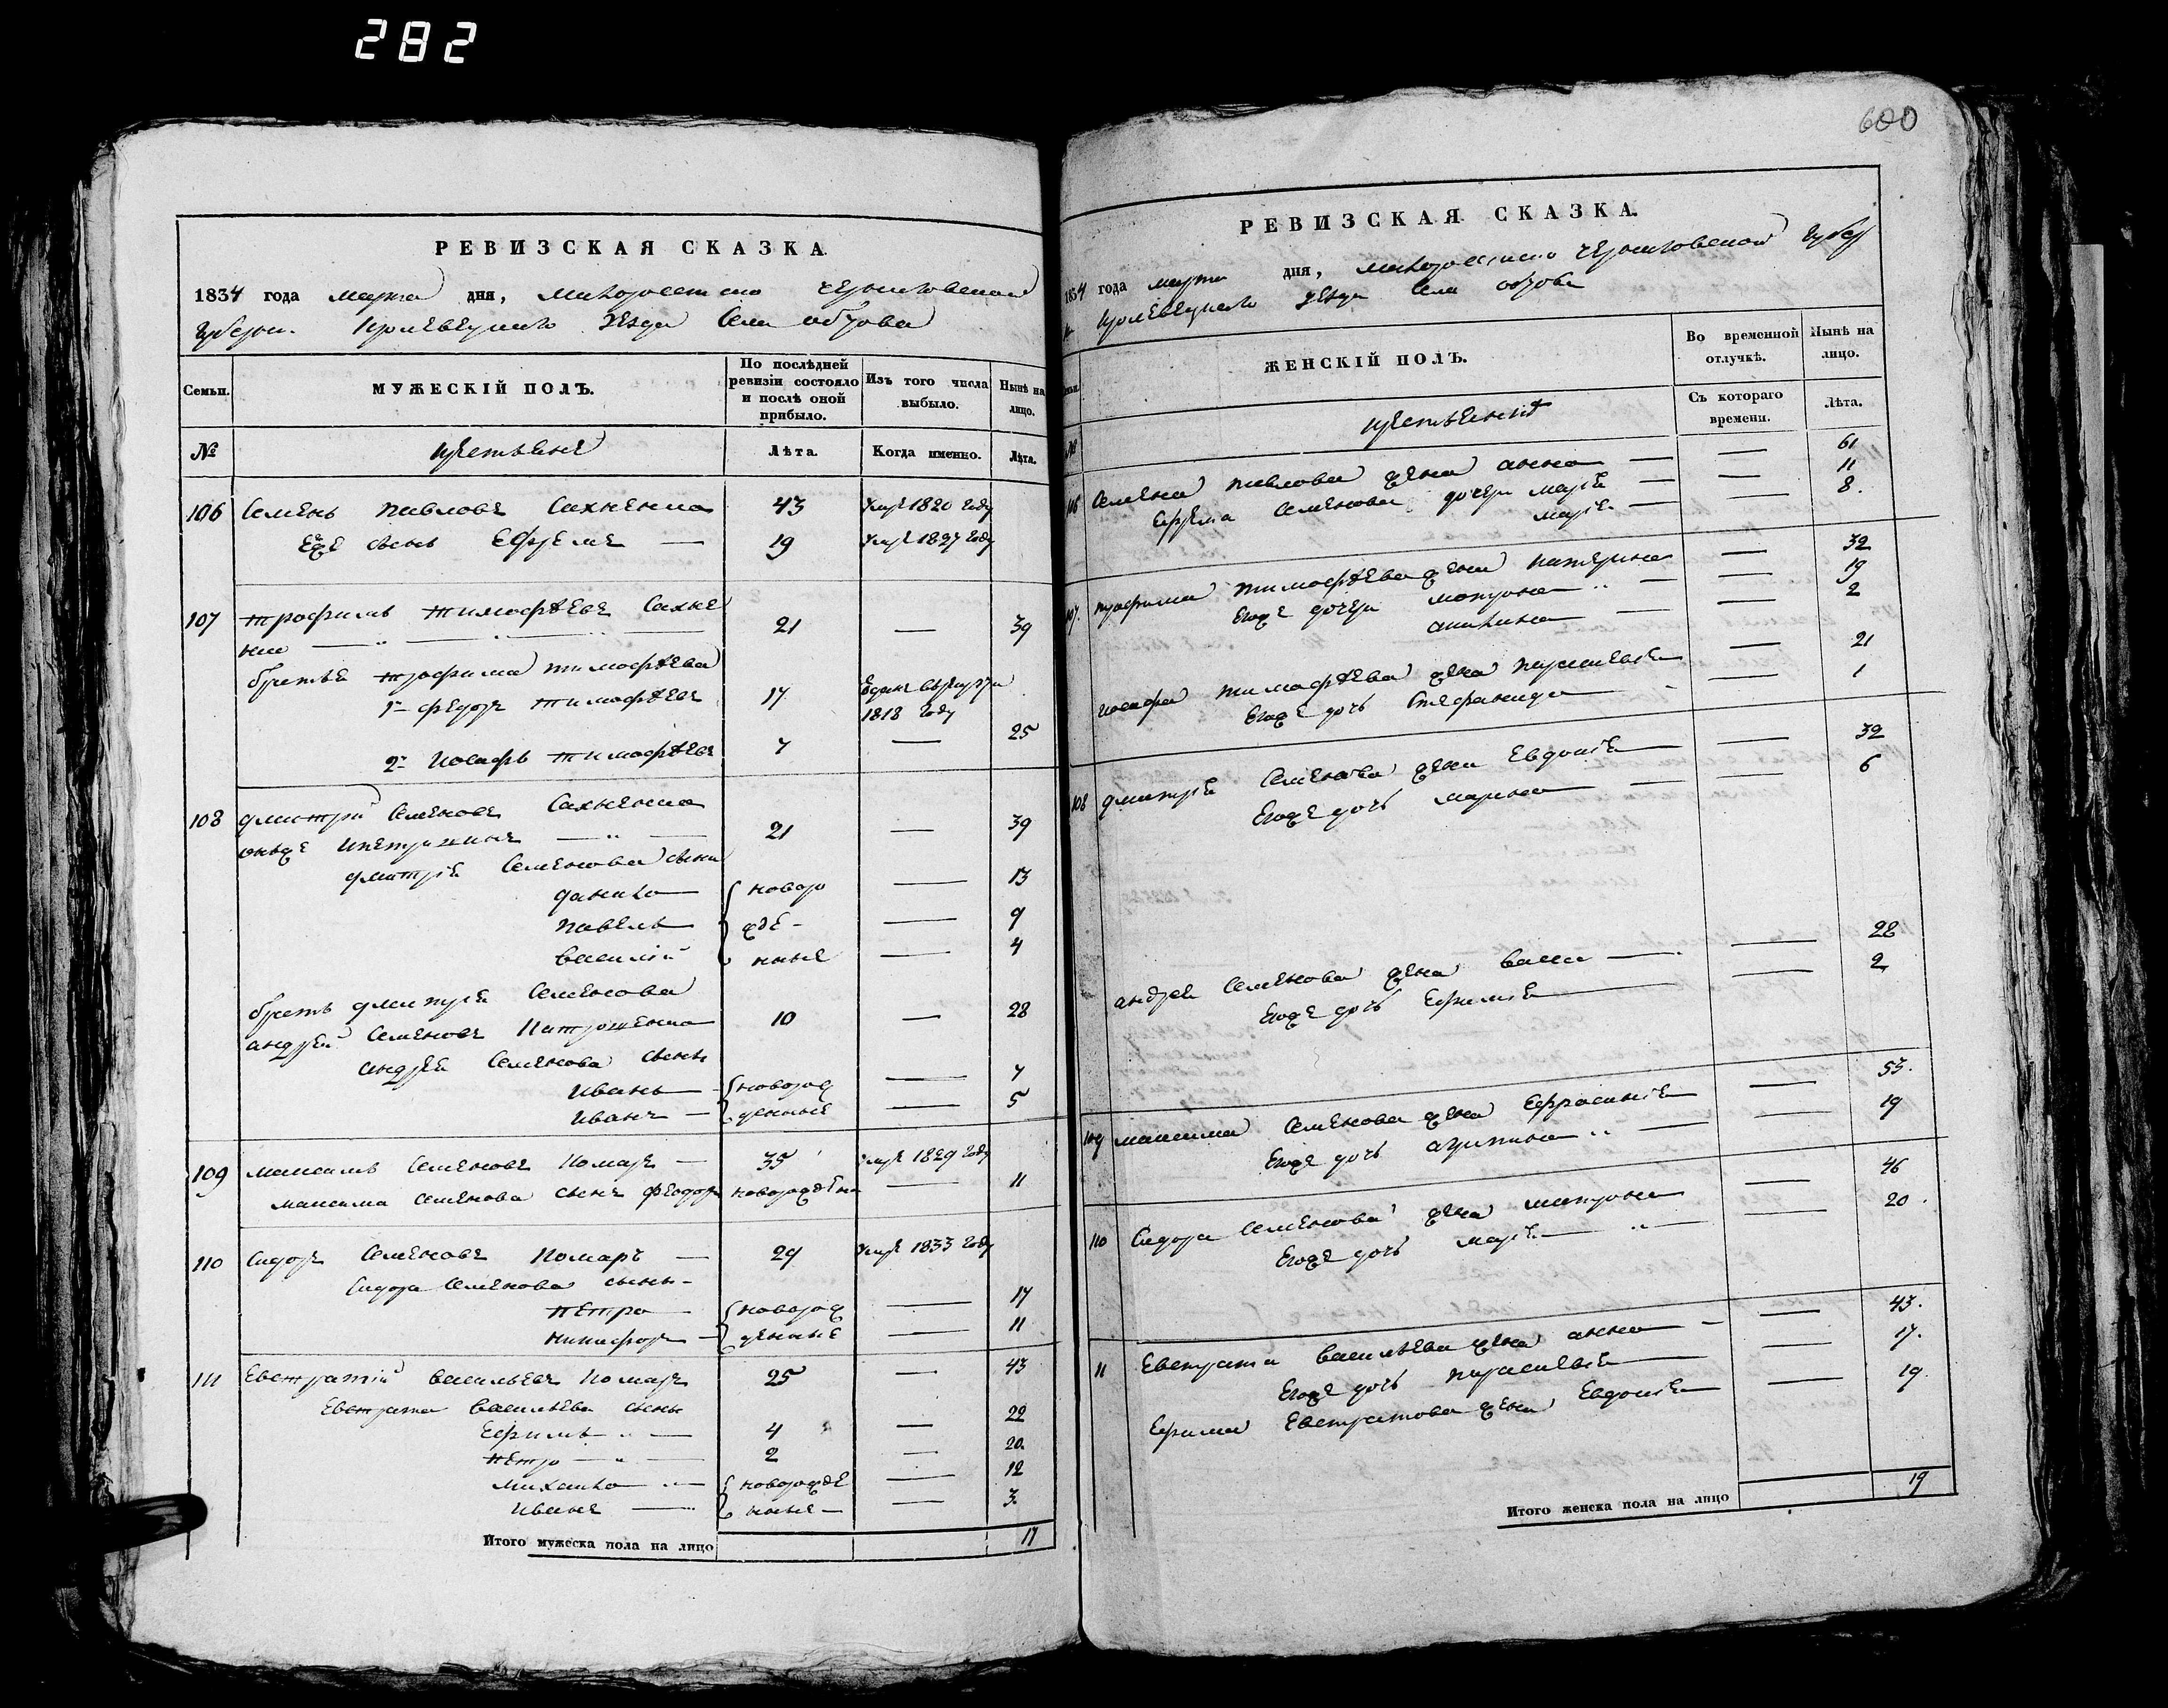 282
РЕВИЗСКАЯ СКАЗКА
1834 года марта дня, Черниговской
Губернии Кролевецкаго уезда Села Обтова
Семьи.
МУЖЕСКІЙ ПОЛЪ.
По послѣдней ревизіи состояло и послѣ оной прибыло.
Изъ того числа выбыло.
Нынѣ на лицо.
№
Лѣта.
Когда именно.
Лѣта.
106 Семенъ Павловъ Сахненко 43 умре 1820 году
Его же сынъ Ефремъ — 19 умре 1827 году
107 Трофимъ Тимофѣевъ Сахне
нко 21 — 39
братья Трофима Тимофѣева
1й Федоръ Тимофѣевъ 17 1818 году
2й Иосифъ Тимофѣевъ 7 — 25
108 Дмитрий Семеновъ Сахненко
онъже 21 — 39
Дмитрія Семенова сыны
Данило { новоро — 13
Павелъ жде- — 9
Василій нные — 4
братъ Дмитрія Семенова
Андрей Семеновъ 10 — 28
Андрея Семенова сыны
Иванъ { новорож — 7
Иванъ — денные — 5
109 Максимъ Семеновъ Комаръ — 35 умре 1829 году
Максима Семенова сынъ Феодоръ — 11
110 Сидоръ Семеновъ Комаръ — 29 умре 1833 году
Сидора Семенова сыны-
Петро { новорож — 17
Никифоръ — денные — 11
111 Евстратій Васильевъ Комаръ 25 — 43
Евстрата Васильева сыны
Ефимъ — 4 — 22
Петро — 2 — 20
Михайло — { новорожде — 12
Иванъ — нные — 3.
Итого мужеска пола на лицо 17
600
РЕВИЗСКАЯ СКАЗКА.
1834 года марта дня, Черниговской Губер
Кролевецкаго уезда Села Обтова
ЖЕНСКІЙ ПОЛЪ.
Во временной отлучкѣ.
Нынѣ на лицо.
Съ котораго времени.
Лѣта.
106 Семена Павлова жена Анна — — 61
Ефрема Семенова дочери Марія — — 11
Марія — — 8.
107. Трофима Тимофѣева жена Катерина — 32
Егоже дочери Матрона — — 19
Акилина — — 2
Иосифа Тимофѣева жена Параскевія — 21
Егоже дочь Стефанида — — 1
108 Дмитрія Семенова жена Евдокія — — 32
Егоже дочь Марина — — 6
Андрея Семенова жена Васса — — 28
Егоже дочь Ефимія — — 2
109 Максима Семенова жена Ефросинія — 53.
Егоже дочь Агрипина — — 19
110 Сидора Семенова жена Матрона — 46
Егоже дочь Марія — — 20.
11 Евстрата Васильева жена Анна — — 43.
Егоже дочь Параскевія — — 17.
Ефима Евстратова жена Евдокія — 19
Итого женска пола на лицо 19